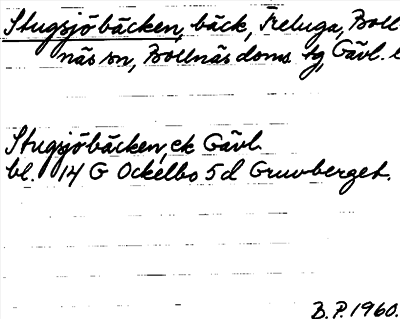 Stugsjöbäcken, bäck, Freluga, Boll
näs sn, Bollnäs doms. tg, Gävl. l
Stugsjöbäcken, ek Gävl.
bl. 14 G Ockelbo 5d Gruvberget.
B.P. 1960.